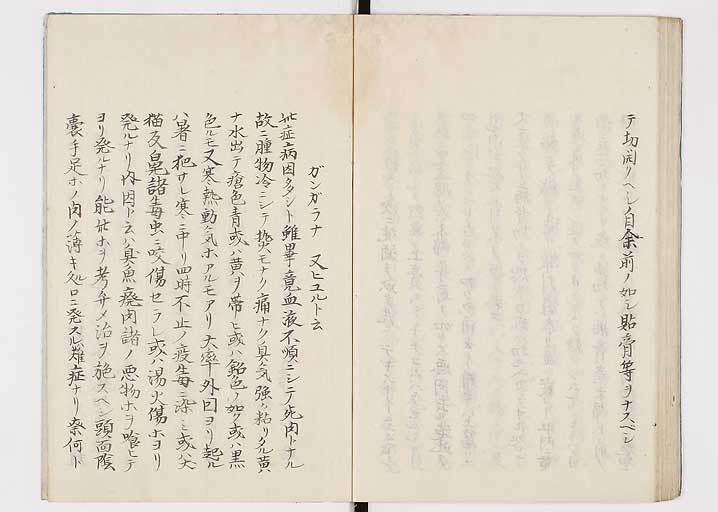 テ切開クヘシ自余前ノ如シ貼膏等ヲナスヘシ
ガンガラナ 又ヒユルト云
此症病因多シト雖畢竟血液不順ニシテ死肉トナル
故ニ腫物冷ニシテ熱モナク痛ナク臭気強ク粘リタル黄
ナ水出テ瘡色青或ハ黄ヲ帯ヒ或ハ鉛色ノ如ク或ハ黒
色ルモ又寒熱動気ホアルモアリ大率外因ヨリ起ル
ハ暑ニ犯サレ寒ニ中リ四時不止ノ疫毒ニ染ミ或ハ犬
猫及鼠諸毒虫ニ咬傷セラレ或ハ湯火傷ホヨリ
発ルナリ内因ト云ハ臭魚廃肉諸ノ悪物ホヲ喰ヒテ
ヨリ発ルナリ能此ホヲ考弁メ治ヲ施スヘシ頭面陰
嚢手足ホノ肉ノ薄キ処ロニ発スル難症ナリ奈何ト